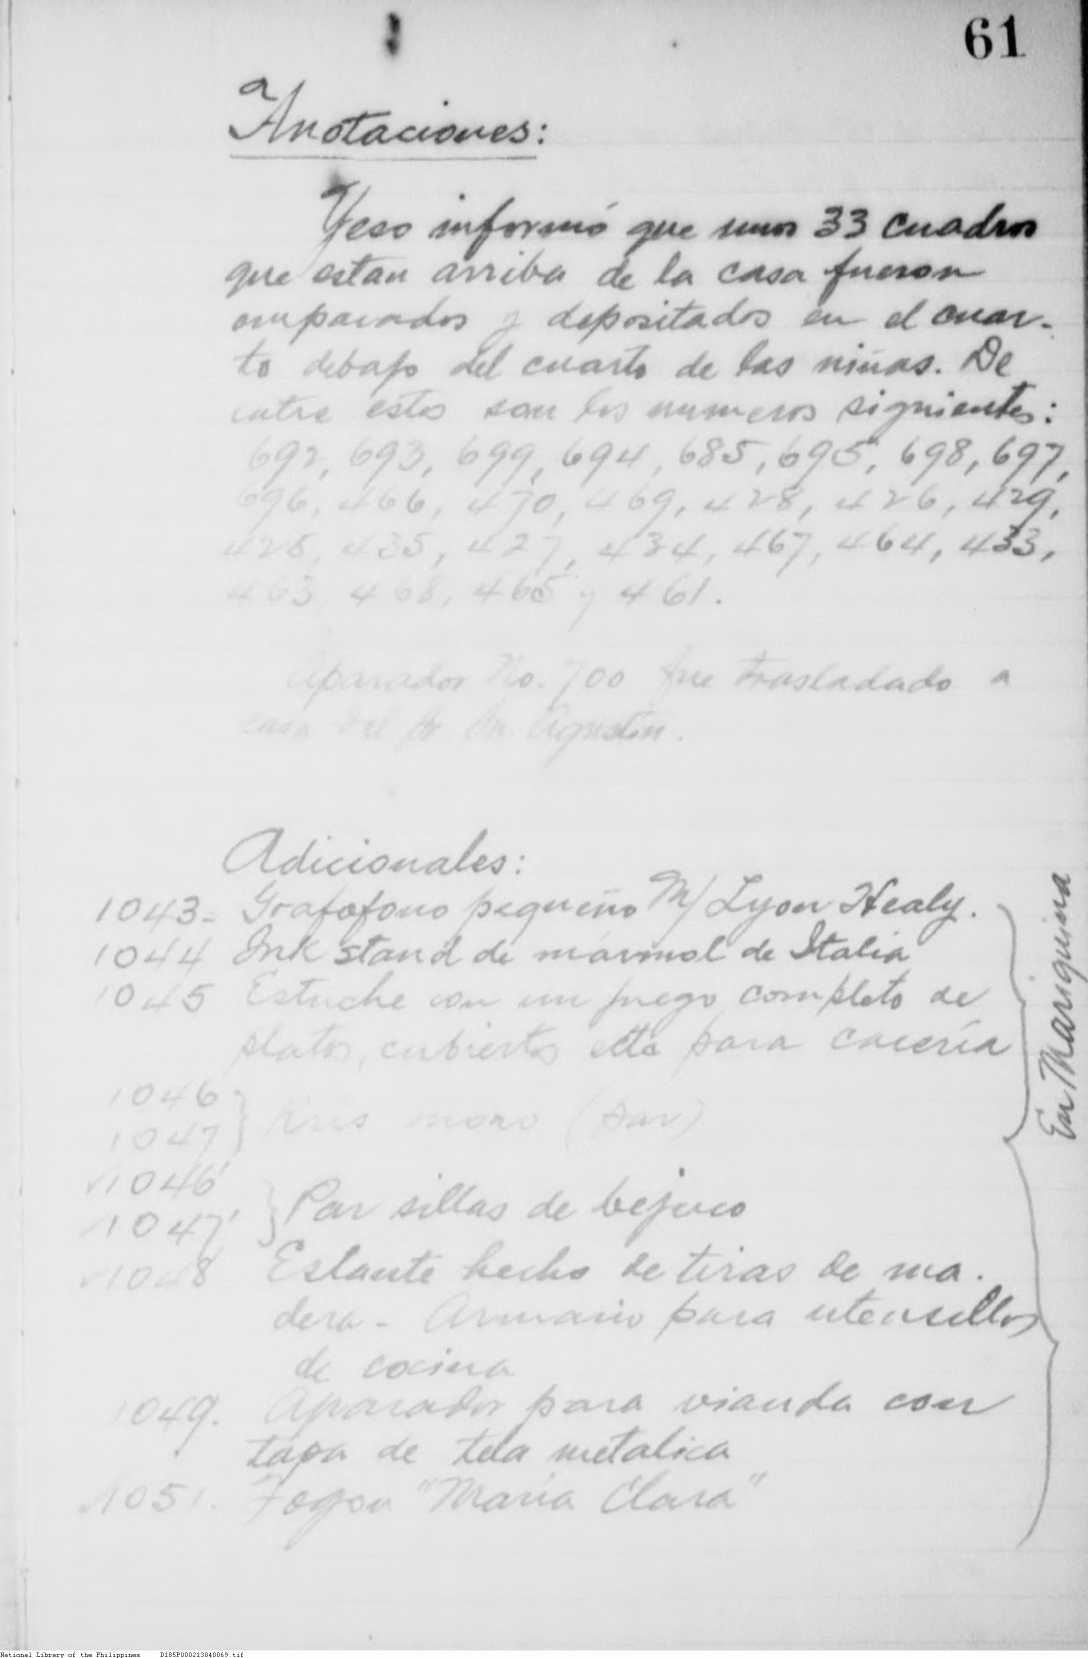 61
Anotaciones:
Yeso informó que unos 33 cuadros
que estan arriba de la casa fueron
amparados y depositados en el cuar-
to debajo del cuarto de las niñas. De
entre estos son los numeros siguientes:
692, 693, 699, 694, 685, 695, 698, 697,
696, 466, 470, 469, 428, 426, 429,
428, 435, 427, 434, 467, 464, 433,
463, 468, 465 y 461.
Aparador No. 700 fue trasladado a
casa del Agustin.
Adicionales:
1043- Grafofono pequeño M/ Lyon Healy.
1044 Ink stand de mármol de Italia
1045 Estuche con un juego completo de
platos, cubiertos etta para cacería
1046
1047 } Kris moro (par)
1046'
1047' } Par sillas de bejuco
1048 Estante hecho de tiras de ma-
dera - Armario para utensillos
de cocina
1049. Aparador para vianda con
tapa de tela metalica
1051. Fogon "Maria Clara"
En Mariquina
National Library of the Philippines D185P000213040069.tif